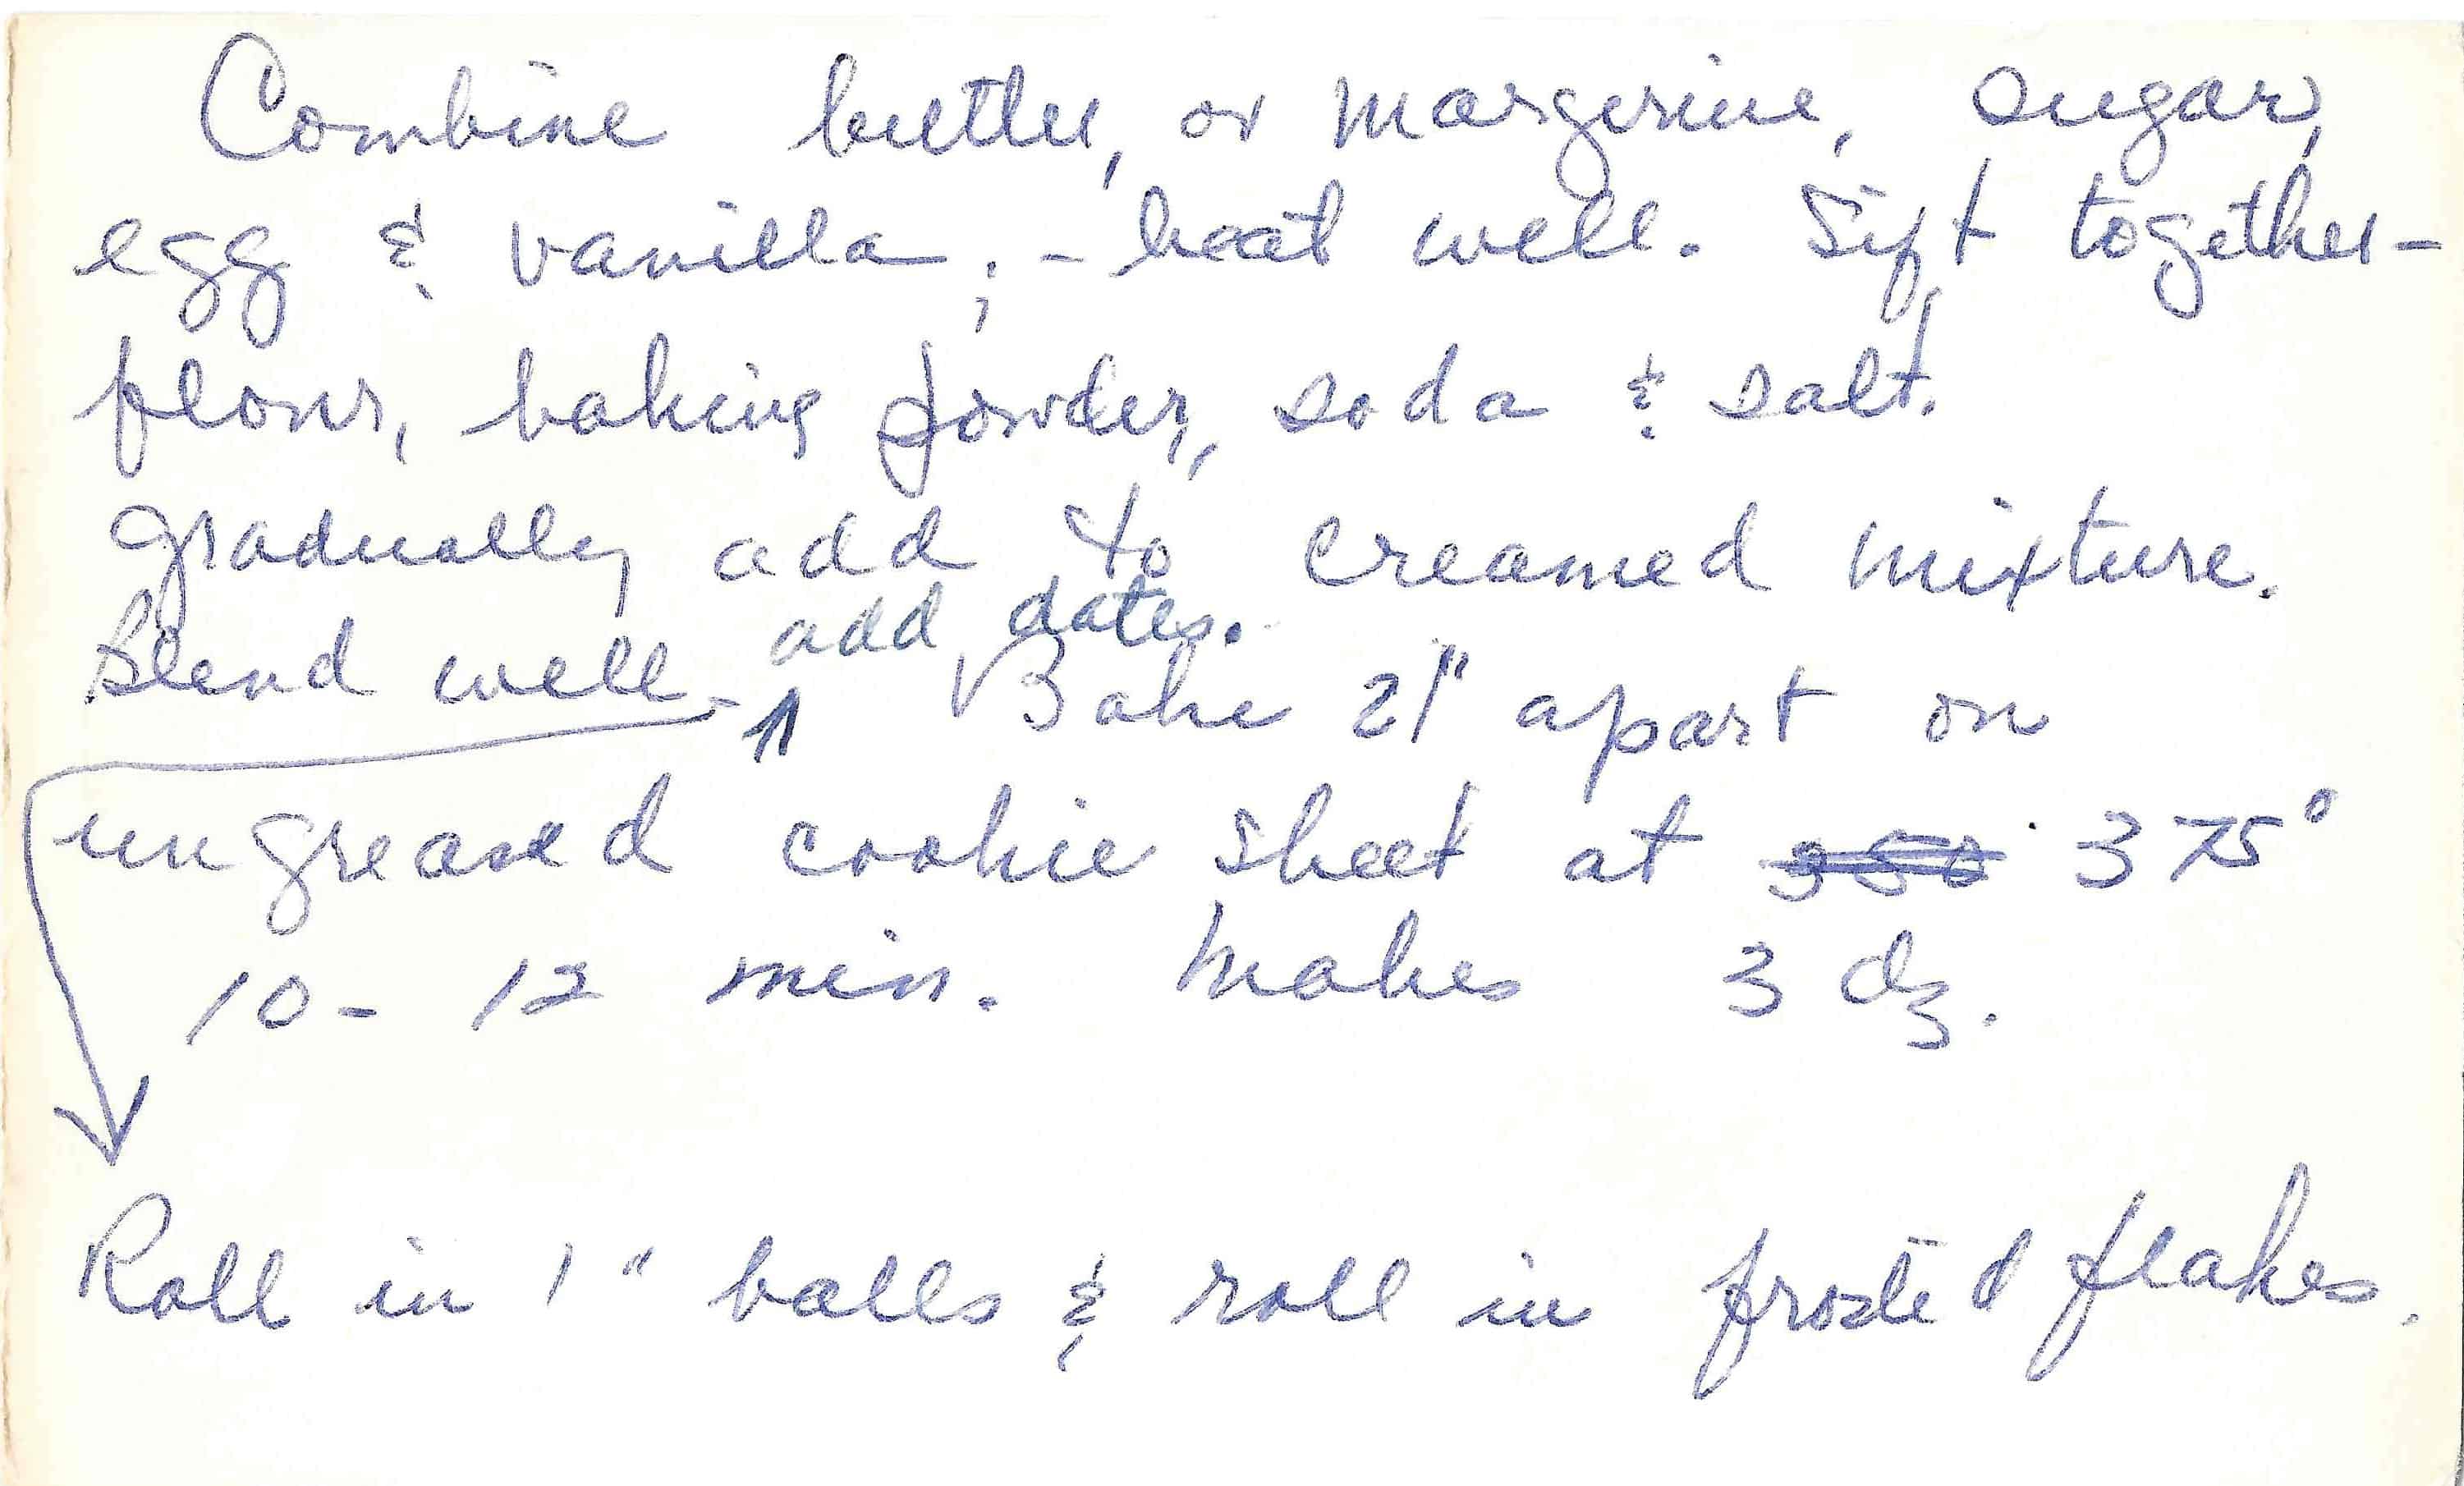 Combine butter, or margerine, sugar,
egg & vanilla; - beat well. Sift together -
flour, baking powder, soda & salt.
gradually add to creamed mixture.
add dates.
Blend well - Bake 2" apart on
ungreased cookie sheet at 350 375°
10 - 12 min. Makes 3 dz.
Roll in 1" balls & roll in frosted flakes.